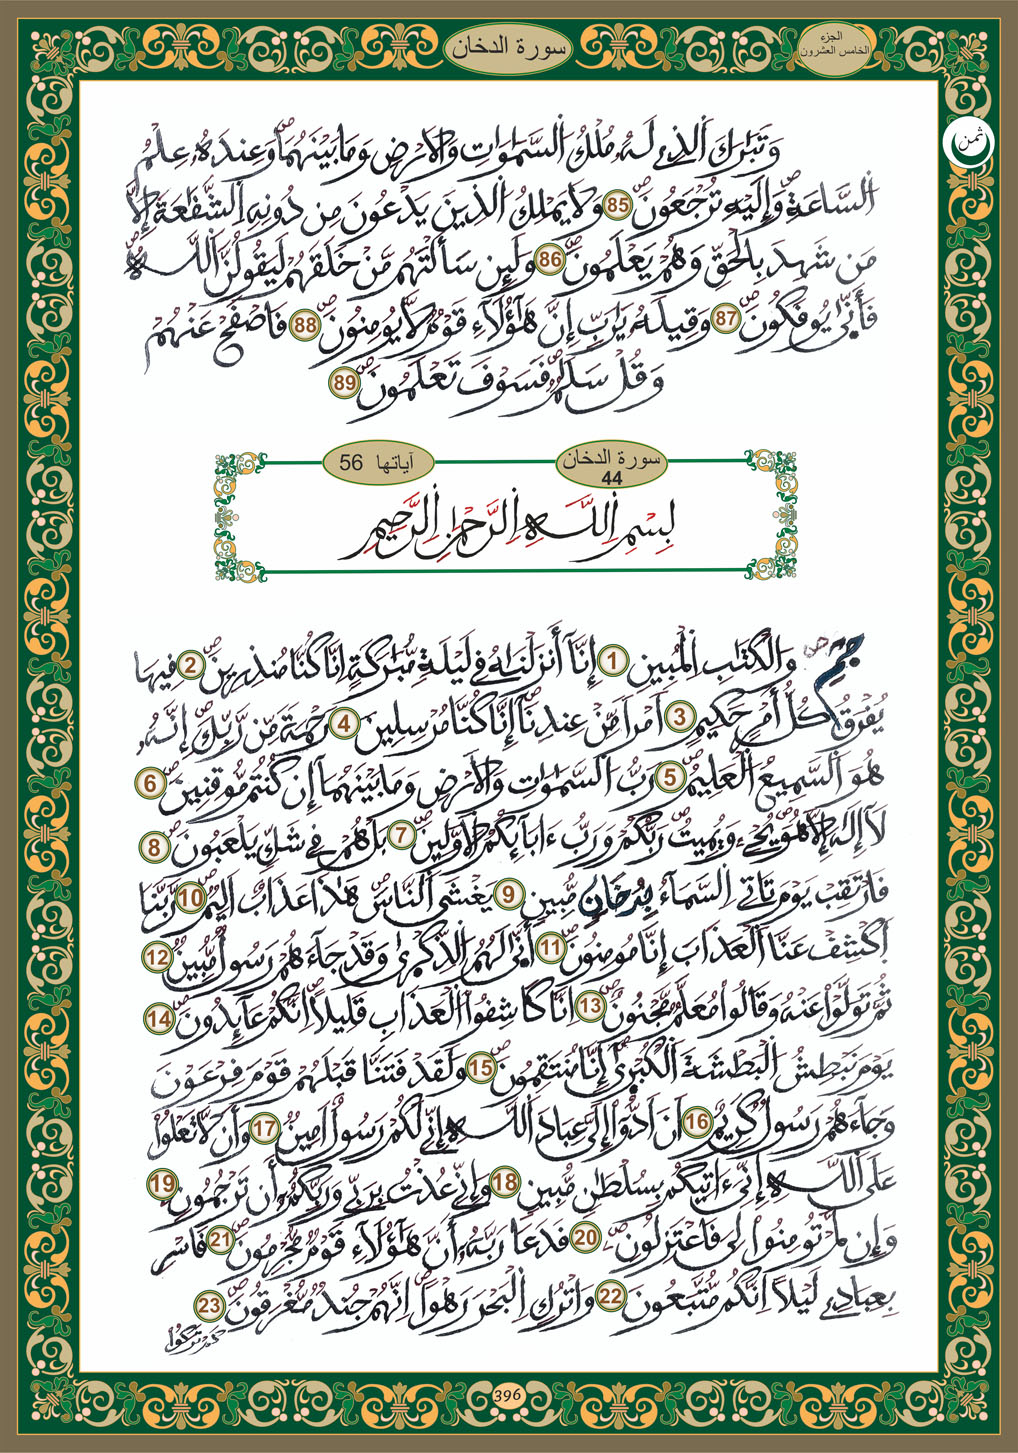 الجزء
الخامس العشرون
سورة الدخان
ثمن
وَتَبَٰرَكَ اَلذِے لَهُۥ مُلْكُ اُلسَّمَٰوَٰتِ وَالَارْضِ وَمَا بَيْنَهُمَا وَعِندَهُۥ عِلْمُ
اُلسَّاعَةِ وَإِلَيْهِ تُرْجَعُونَ 85 وَلَا يَمْلِكُ اُلذِينَ يَدْعُونَ مِن دُونِهِ اِلشَّفَٰعَةَ إِلَّا
مَن شَهِدَ بِالْحَقِّ وَهُمْ يَعْلَمُونَ 86 وَلَئِن سَأَلْتَهُم مَّنْ خَلَقَهُمْ لَيَقُولُنَّ اَللَّهُ
فَأَنّ۪يٰ يُوفَكُونَ 87 وَقِيلَهُۥ يَٰرَبِّ إِنَّ هَٰٓؤُلَآءِ قَوْمٌ لَّا يُومِنُونَ 88 فَاصْفَحْ عَنْهُمْ
وَقُلْ سَلَٰمٌ فَسَوْفَ تَعْلَمُونَ 89
سورة الدخان
44
آياتها 56
بِسْمِ اِللَّهِ اِلرَّحْمَٰنِ اِلرَّحِيمِ
جمِّ وَالْكِتَٰبِ اِلْمُبِينِ 1 إِنَّآ أَنزَلْنَٰهُ فِے لَيْلَةٖ مُّبَٰرَكَةٍ اِنَّا كُنَّا مُنذِرِينَ 2 فِيهَا
يُفْرَقُ كُلُّ أَمْرٍ حَكِيمٍ 3 اَمْراٗ مِّنْ عِندِنَآ إِنَّا كُنَّا مُرْسِلِينَ 4 رَحْمَةٗ مِّن رَّبِّكَ إِنَّهُۥ
هُوَ اَلسَّمِيعُ اُلْعَلِيمُ 5 رَبُّ اُلسَّمَٰوَٰتِ وَالَارْضِ وَمَا بَيْنَهُمَآ إِن كُنتُم مُّوقِنِينَ 6
لَآ إِلَٰهَ إِلَّا هُوَ يُحْيِۦ وَيُمِيتُ رَبُّكُمْ وَرَبُّ ءَابَآئِكُمُ اُلَاوَّلِينَ 7 بَلْ هُمْ فِے شَكّٖ يَلْعَبُونَ 8
فَارْتَقِبْ يَوْمَ تَاتِے اِلسَّمَآءُ بِدُخَانٖ مُّبِينٖ 9 يَغْشَي اَلنَّاسَ هَٰذَا عَذَابٌ اَلِيمٌ 10 رَّبَّنَا
اَكْشِفْ عَنَّا اَلْعَذَابَ إِنَّا مُومِنُونَ 11 أَنّ۪يٰ لَهُمُ اُلذِّكْر۪يٰ وَقَدْ جَآءَهُمْ رَسُولٞ مُّبِينٞ 12
ثُمَّ تَوَلَّوْا عَنْهُ وَقَالُوا مُعَلَّمٞ مَّجْنُونٌ 13 اِنَّا كَاشِفُوا اُلْعَذَابِ قَلِيلاً اِنَّكُمْ عَآئِدُونَ 14
يَوْمَ نَبْطِشُ اُلْبَطْشَةَ اَلْكُبْر۪يٰٓ إِنَّا مُنتَقِمُونَ 15 وَلَقَدْ فَتَنَّا قَبْلَهُمْ قَوْمَ فِرْعَوْنَ
وَجَآءَهُمْ رَسُولٞ كَرِيمٌ 16 اَنَ اَدُّوٓا إِلَيَّ عِبَادَ اَللَّهِ إِنِّے لَكُمْ رَسُولٌ اَمِينٞ 17 وَأَن لَّا تَعْلُوا
عَلَي اَللَّهِ إِنِّيَ ءَاتِيكُم بِسُلْطَٰنٖ مُّبِينٖ 18 وَإِنِّے عُذْتُ بِرَبِّے وَرَبِّكُمُۥٓ أَن تَرْجُمُونِۦ 19
وَإِن لَّمْ تُومِنُوا لِے فَاعْتَزِلُونِۦ 20 فَدَعَا رَبَّهُۥٓ أَنَّ هَٰٓؤُلَآءِ قَوْمٞ مُّجْرِمُونَ 21 فَاسْرِ
بِعِبَادِے لَيْلاً اِنَّكُم مُّتَّبَعُونَ 22 وَاتْرُكِ اِلْبَحْرَ رَهْواً اِنَّهُمْ جُندٞ مُّغْرَقُونَ 23
كَمْ تَرَكُوا
396